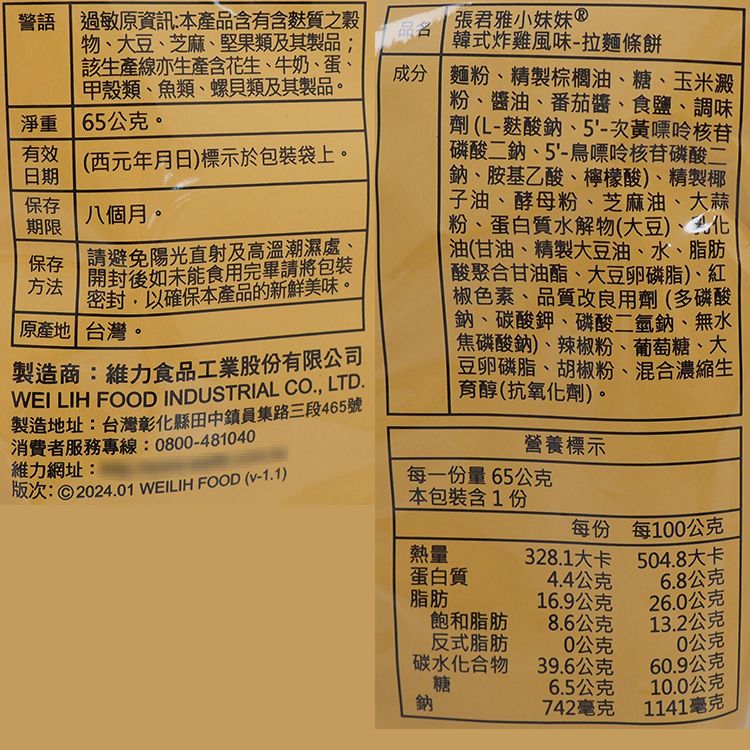 警語
過敏原資訊:本產品含有含麩質之穀
物、大豆、芝麻、堅果類及其製品；
該生產線亦生產含花生、牛奶、蛋、
甲殼類、魚類、螺貝類及其製品。
淨重 65公克。
有效
日期
(西元年月日)標示於包裝袋上。
保存
期限
八個月。
保存
方法
請避免陽光直射及高溫潮濕處、
開封後如未能食用完畢請將包裝
密封，以確保本產品的新鮮美味。
原產地 台灣。
製造商：維力食品工業股份有限公司
WEI LIH FOOD INDUSTRIAL CO., LTD.
製造地址：台灣彰化縣田中鎮員集路三段465號
消費者服務專線：0800-481040
維力網址：
版次：©2024.01 WEILIH FOOD (v-1.1)
品名
張君雅小妹妹®
韓式炸雞風味-拉麵條餅
成分
麵粉、精製棕櫚油、糖、玉米澱
粉、醬油、番茄醬、食鹽、調味
劑(L-麩酸鈉、5'-次黃嘌呤核苷
磷酸二鈉、5'-鳥嘌呤核苷磷酸二
鈉、胺基乙酸、檸檬酸)、精製椰
子油、酵母粉、芝麻油、大蒜
粉、蛋白質水解物(大豆)、乳化
油(甘油、精製大豆油、水、脂肪
酸聚合甘油酯、大豆卵磷脂)、紅
椒色素、品質改良用劑(多磷酸
鈉、碳酸鉀、磷酸二氫鈉、無水
焦磷酸鈉)、辣椒粉、葡萄糖、大
豆卵磷脂、胡椒粉、混合濃縮生
育醇(抗氧化劑)。
營養標示
每一份量 65公克
本包裝含 1 份
每份 每100公克
熱量 328.1大卡 504.8大卡
蛋白質 4.4公克 6.8公克
脂肪 16.9公克 26.0公克
飽和脂肪 8.6公克 13.2公克
反式脂肪 0公克 0公克
碳水化合物 39.6公克 60.9公克
糖 6.5公克 10.0公克
鈉 742毫克 1141毫克